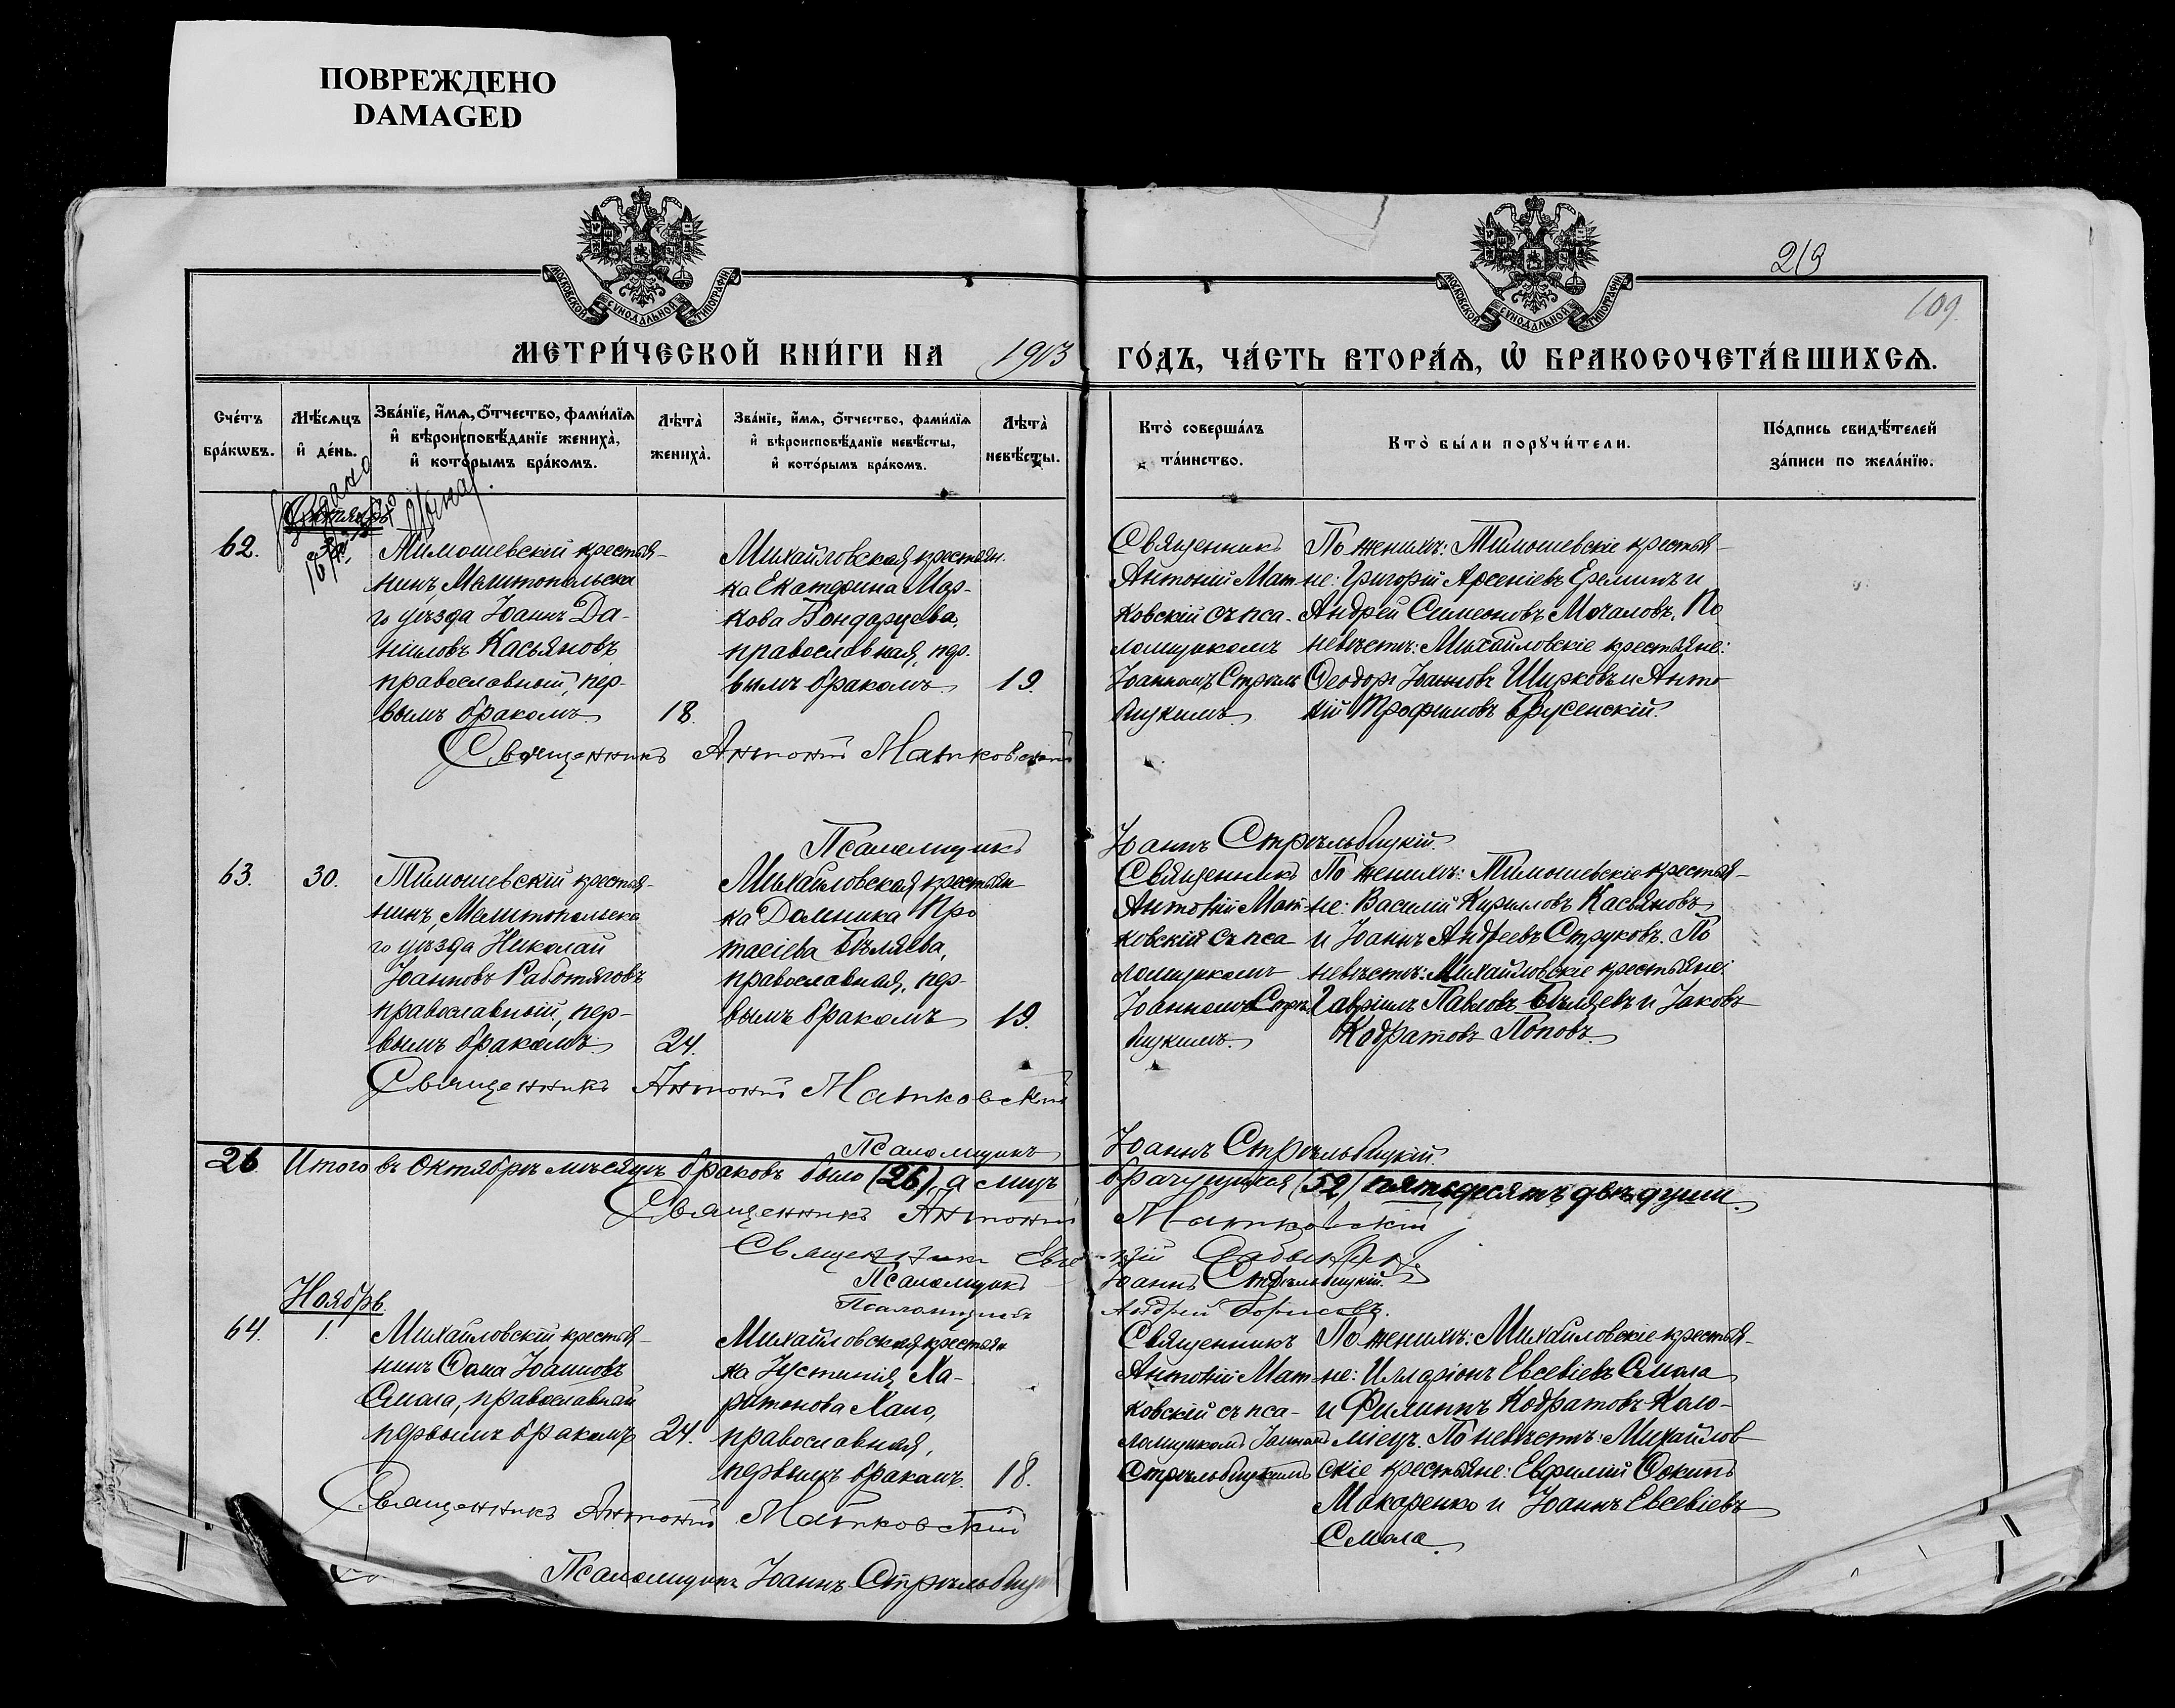 ПОВРЕЖДЕНО
DAMAGED
МОСКОВСКОЙ СѴНОДАЛЬНОЙ ТИПОГРАФІИ
МОСКОВСКОЙ СѴНОДАЛЬНОЙ ТИПОГРАФІИ
219
109
МЕТРИ́ЧЕСКОЙ КНИ́ГИ НА 1903 ГО́ДЪ, ЧА́СТЬ ВТОРА́Ѧ, Ѡ БРАКОСОЧЕТА́ВШИХСѦ.
Сче́тъ
бра́кѡвъ.
Мѣ́сѧцъ
и҆ де́нь.
Зва́нїе, и҆́мѧ, ѻ҆́тчество, фами́лїѧ
и҆ вѣроисповѣ́данїе жениха̀,
и҆ кото́рымъ бра́комъ.
Лѣ́та̀
жениха̀.
Зва́нїе, и҆́мѧ, ѻ҆́тчество, фами́лїѧ
и҆ вѣроисповѣ́данїе невѣ́сты,
и҆ кото́рымъ бра́комъ.
Лѣ́та̀
невѣ́сты.
Кто̀ соверша́лъ
та́инство.
Кто̀ бы́ли порꙋчи́тели.
По́дпись свидѣ́телей
за́писи по жела́нїю.
62.
Тимошевскій крестья-
нинъ, Мелитопольска
го уѣзда Іоаннъ Да-
ніиловъ Касьяновъ
православный, пер-
вымъ бракомъ.
18.
Михайловская крестьян-
ка Екатерина Мар-
кова Бондарцева,
православная, пер-
вымъ бракомъ
19.
Священникъ
Антоній Мат-
ковскій съ пса-
ломщикомъ
Іоанномъ Стрѣль
бицкимъ.
По женихѣ: Тимошевскіе крестья-
не: Григорій Арсеніевъ Ереминъ и
Андрей Симеоновъ Мочаловъ. По
невѣстѣ: Михайловскіе крестьяне:
Ѳеодоръ Іоанновъ Ширковъ и Анто
ній Трофимовъ Брусенскій.
Священникъ Антоній Матковскій
Псаломщикъ Іоаннъ Стрѣльбицкій.
63.
30.
Тимошевскій крестья-
нинъ, Мелитопольска
го уѣзда Николай
Іоанновъ Работяговъ
православный, пер-
вымъ бракомъ.
24.
Михайловская крестьян
ка Домника Про
тасіева Бѣляева,
православная, пер-
вымъ бракомъ
19.
Священникъ
Антоній Мат-
ковскій съ пса
ломщикомъ
Іоанномъ Стрѣль
бицкимъ.
По женихѣ: Тимошевскіе крестья-
не: Василій Кирилловъ Касьяновъ
и Іоаннъ Андреевъ Струковъ. По
невѣстѣ: Михайловскіе крестьяне:
Гавріилъ Павловъ Бѣляевъ и Іаковъ
Кодратовъ Поповъ.
Священникъ Антоній Матковскій
Псаломщикъ Іоаннъ Стрѣльбицкій.
26. Итого въ Октябрѣ мѣсяцѣ браковъ было (26), а лицъ брачущихся (52) пятьдесятъ двѣ души.
Священникъ Антоній Матковскій
Священникъ
Псаломщикъ Іоаннъ Стрѣльбицкій.
Псаломщикъ Андрей Борисовъ.
Ноябрь.
64.
1.
Михайловскій крестья-
нинъ Ѳома Іоанновъ
Смола, православный
первымъ бракомъ
24.
Михайловская крестьян
ка Іустинія Ха-
ритонова Хано,
православная,
первымъ бракомъ.
18.
Священникъ
Антоній Мат-
ковскій съ пса-
ломщикомъ Іоанномъ
Стрѣльбицкимъ
По женихѣ: Михайловскіе крестья-
не: Илларіонъ Евсевіевъ Смола
и Филиппъ Кодратовъ Коло-
міецъ. По невѣстѣ: Михайлов
скіе крестьяне: Евфимій Ѳокинъ
Макаренко и Іоаннъ Евсевіевъ
Смола.
Священникъ Антоній Матковскій
Псаломщикъ Іоаннъ Стрѣльбиц